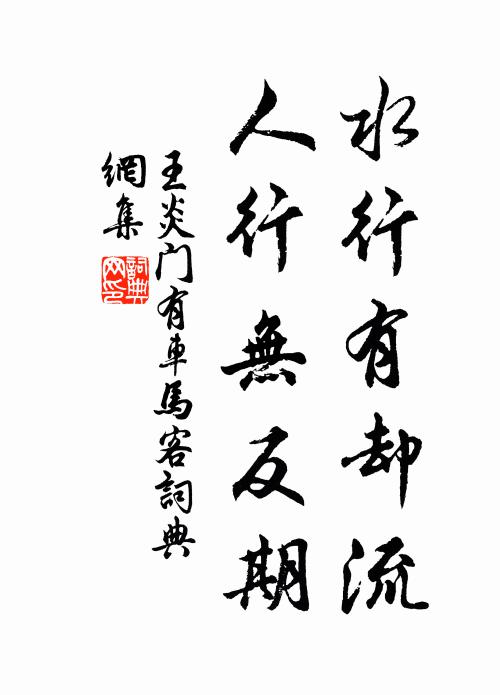 水行有却流
人行無反期
王炎門有車馬客詞典
網集
詞典網印